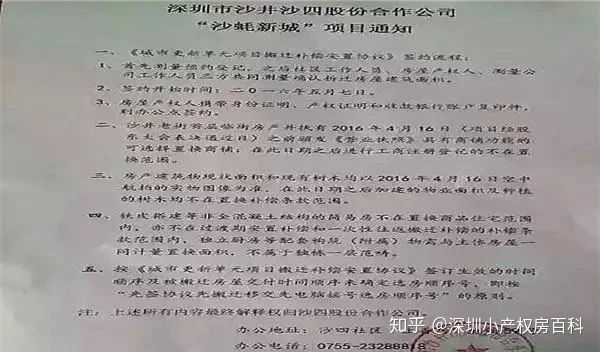 深圳市沙井沙四股份合作公司
“沙蚝新城”项目通知
一、《城市更新单元项目搬迁补偿安置协议》签约流程：
1、首先测量预约登记，之后社区工作人员、房屋产权人、测量公
司工作人员三方共同测量确认拆迁房屋建筑面积。
2、签约开始时间：二0一六年五月七日。
3、房屋产权人携带身份证明、产权证明和收款银行账户复印件，
到办公点签约。
二、沙井老街首层临街房产并扶有2016年4月16日（项目经股
东大会表决通过日）之前颁发《营业执照》具有商铺功能的
可选择置换商铺；在此日期之后进行工商注册登记的不在置
换范围。
三、房产建筑物现状面积和现有树木均以2016年4月16日空中
航拍的实物图像为准，在此日期之后加建的物业面积及种植
的树木均不在置换补偿条款范围。
四、铁皮搭建等非全混凝土结构的简易房不在置换商品住宅范围
内，亦不在过渡期安置补偿和一次性往返搬迁补偿的补偿条
款范围内，独立厨房等配套构筑（附属）物需与主体房屋一
同计量置换面积，不属于独栋一层范畴。
五、按《城市更新单元项目搬迁补偿安置协议》签订生效的时间
顺序及被搬迁房屋交付时间顺序来确定选房顺序号，即按
“先签协议先搬迁移交先电脑摇号选房顺序号”的原则。
注：上述所有内容最终解释权归沙四股份合作公司。
办公地址：沙四社区
办公电话：0755-23288818
知乎 @深圳小产权房百科